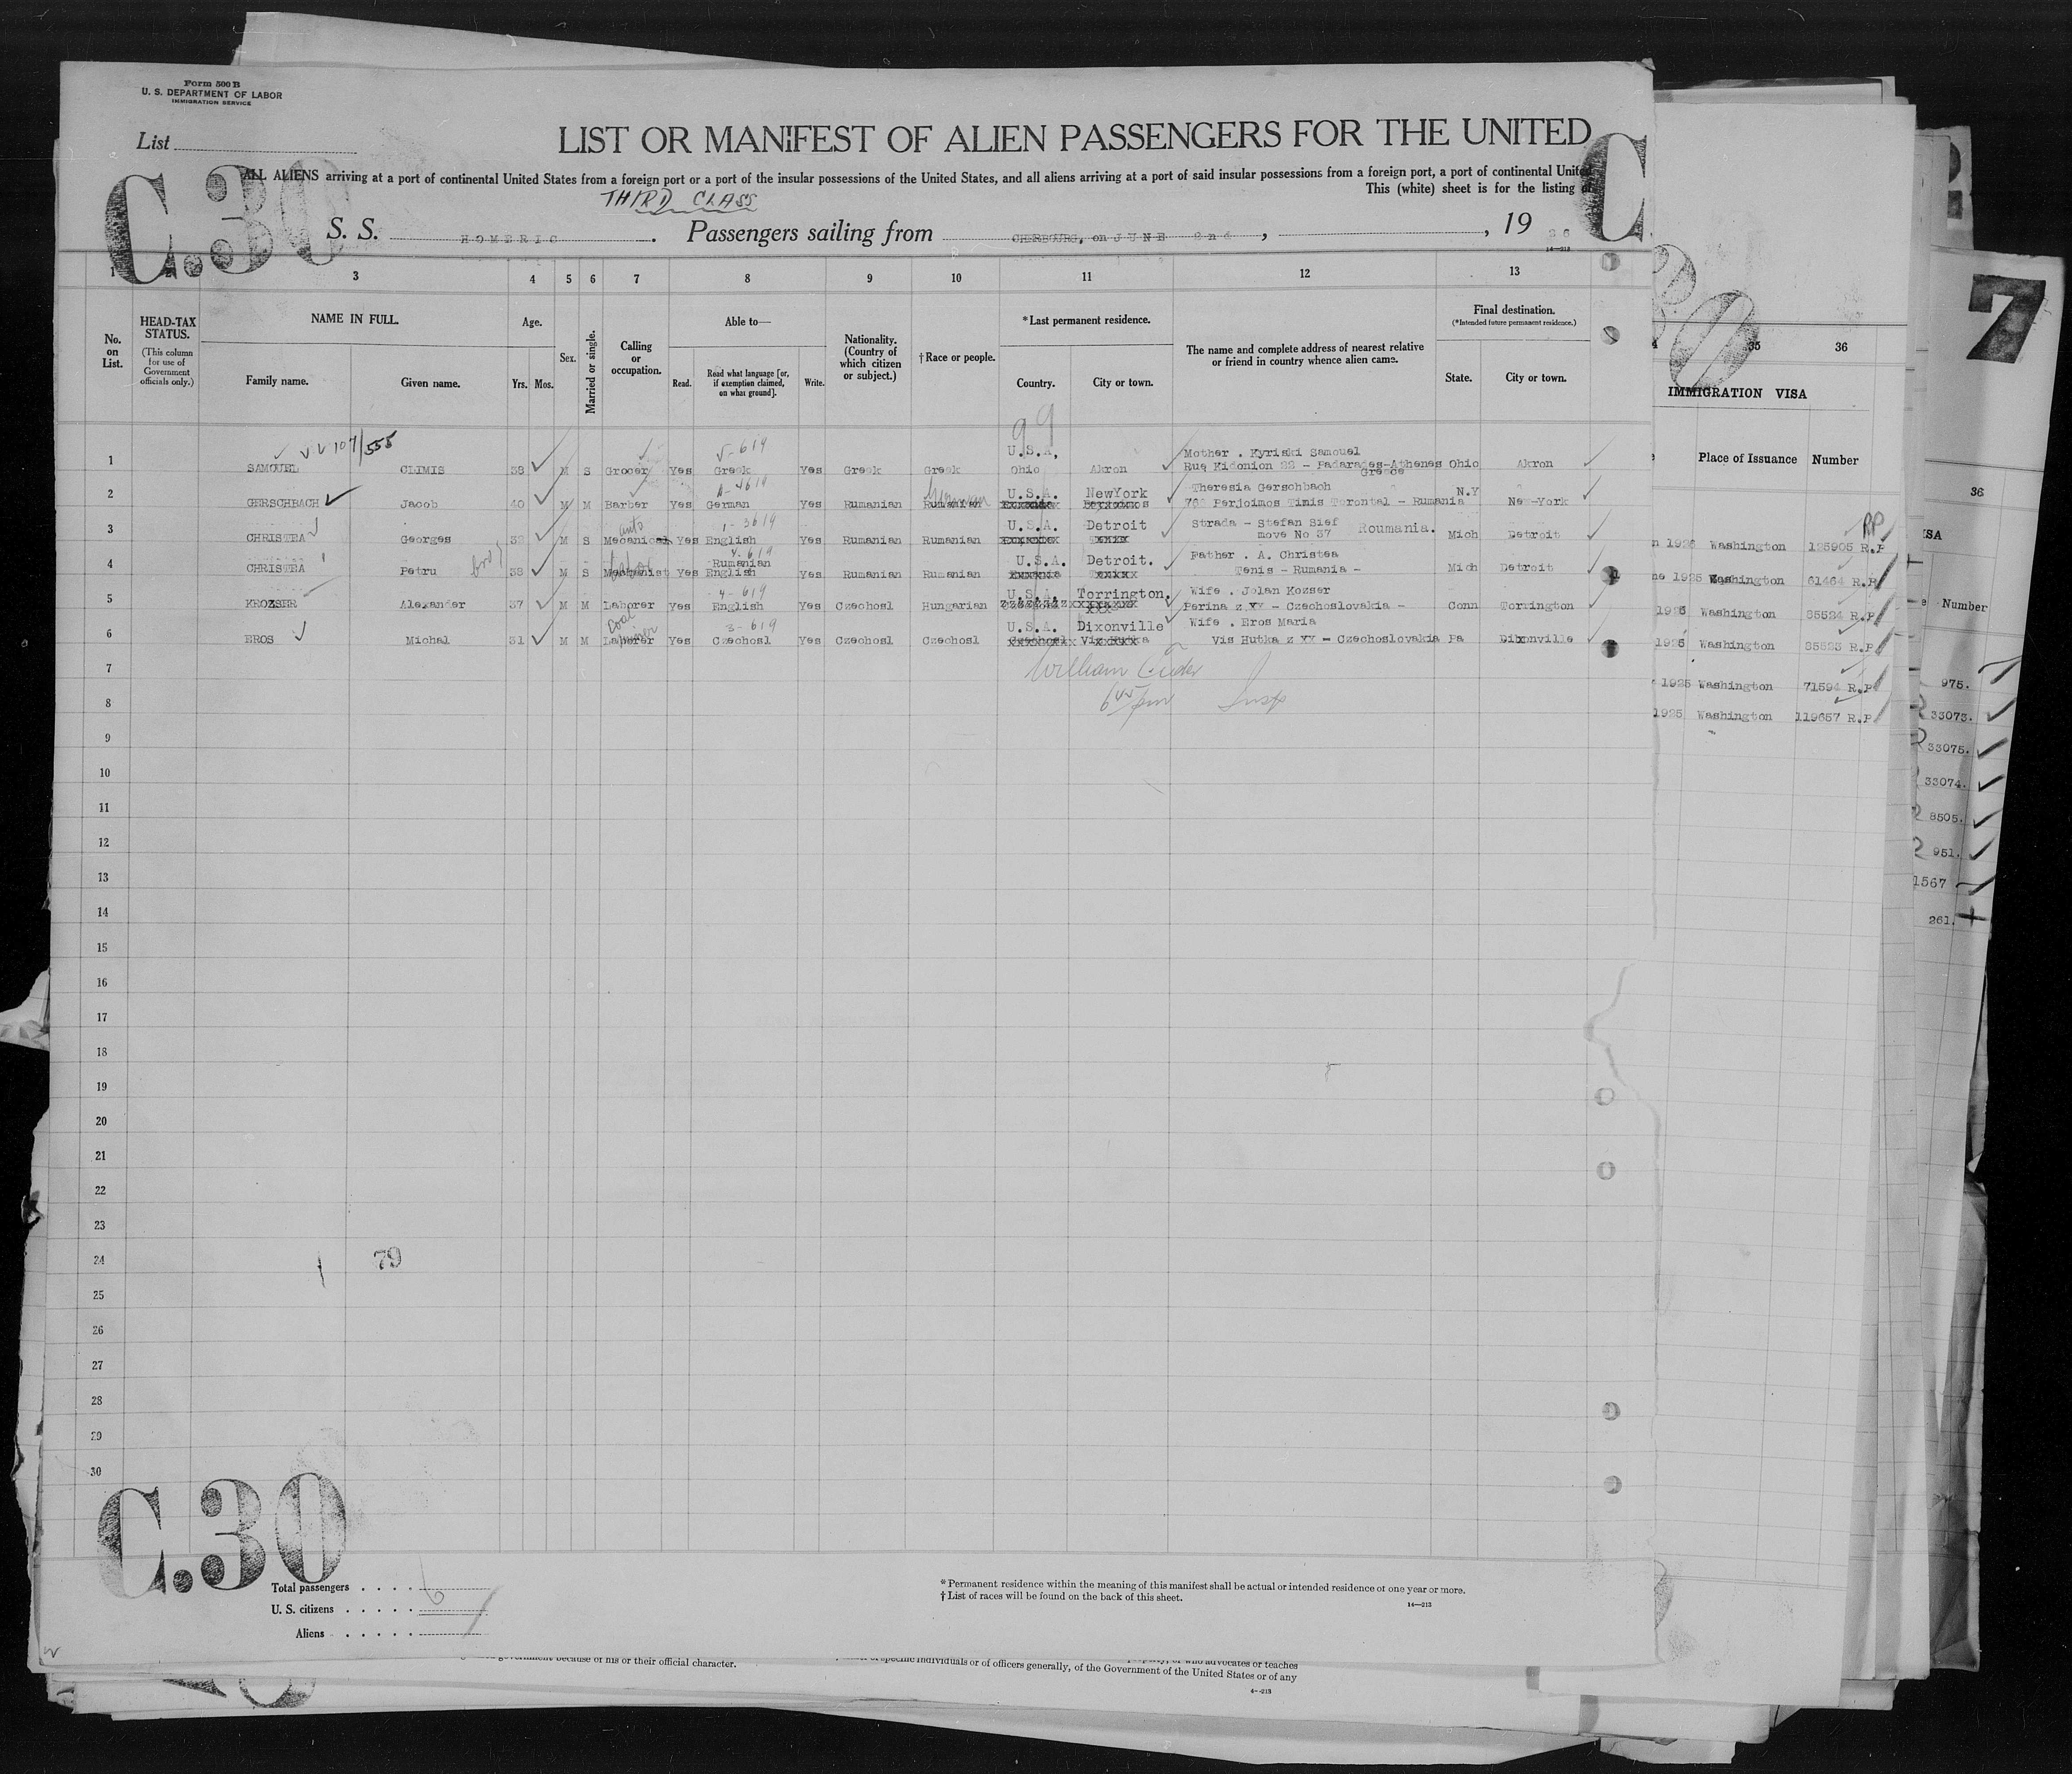 Form 500 B
U. S. DEPARTMENT OF LABOR
IMMIGRATION SERVICE
List
LIST OR MANIFEST OF ALIEN PASSENGERS FOR THE UNITED
C.30
C
ALL ALIENS arriving at a port of continental United States from a foreign port or a port of the insular possessions of the United States, and all aliens arriving at a port of said insular possessions from a foreign port, a port of continental United
This (white) sheet is for the listing of
THIRD CLASS
S. S. HOMERIC. Passengers sailing from CHERBOURG, on JUNE 2nd, , 19 26
14—213
1 3 4 5 6 7 8 9 10 11 12 13
No. on List.
HEAD-TAX STATUS.
(This column for use of Government officials only.)
NAME IN FULL.
Family name. Given name.
Age.
Yrs. Mos.
Sex.
Married or single.
Calling or occupation.
Able to—
Read. Read what language [or, if exemption claimed, on what ground]. Write.
Nationality. (Country of which citizen or subject.)
†Race or people.
*Last permanent residence.
Country. City or town.
The name and complete address of nearest relative or friend in country whence alien came.
Final destination.
(*Intended future permanent residence.)
State. City or town.
99
107/555 5-619 U.S.A, Mother . Kyriaki Samouel
1 SAMOUEL CLIMIS 38 M S Grocer Yes Greek Yes Greek Greek Ohio Akron Rue Kidonion 22 - Padarades-Athenes Ohio Akron
Greece
4619 U.S.A. NewYork Theresia Gerschbach N.Y
2 GERSCHBACH Jacob 40 M M Barber Yes German Yes Rumanian Rumanian 702 Perjoimos Timis Torontal - Rumania New-York
auto 1-3619 U.S.A. Detroit Strada - Stefan Sief Roumania.
3 CHRISTEA Georges 32 M S Mecanical Yes English Yes Rumanian Rumanian move No 37 Mich Detroit
4-619 Rumanian U.S.A. Detroit. Father . A. Christea
4 CHRISTEA Petru bro 38 M S Mechanist Yes English Yes Rumanian Rumanian Tenis - Rumania - Mich Detroit
4-619 U.S.A. Torrington. Wife . Jolan Kozser
5 KROZSER Alexander 37 M M Laborer Yes English Yes Czechosl Hungarian Perina z.XY - Czechoslovakia - Conn Torrington
Coal miner 3-619 U.S.A. Dixonville Wife . Eros Maria
6 EROS Michal 31 M M Laborer Yes Czechosl Yes Czechosl Czechosl Vis Hutka z XY - Czechoslovakia Pa Dixonville
7
William
8
6 45 pm Insp
9
10
11
12
13
14
15
16
17
18
19
20
21
22
23
24 79
25
26
27
28
29
30
C.30
Total passengers . . . . 6
U. S. citizens . . . . .
Aliens . . . . . .
* Permanent residence within the meaning of this manifest shall be actual or intended residence of one year or more.
† List of races will be found on the back of this sheet.
14—213
government because of his or their official character.
or who advocates or teaches
specific individuals or of officers generally, of the Government of the United States or of any
35 36
IMMIGRATION VISA
Place of Issuance Number
RP
1926 Washington 125905 R.P
1925 Washington 61464 R.P
1926 Washington 85524 R.P
1926 Washington 85523 R.P
1925 Washington 71594 R.P
1925 Washington 119657 R.P
7
36
Number
975.
33073.
33075.
33074.
8505.
951.
1567
261.